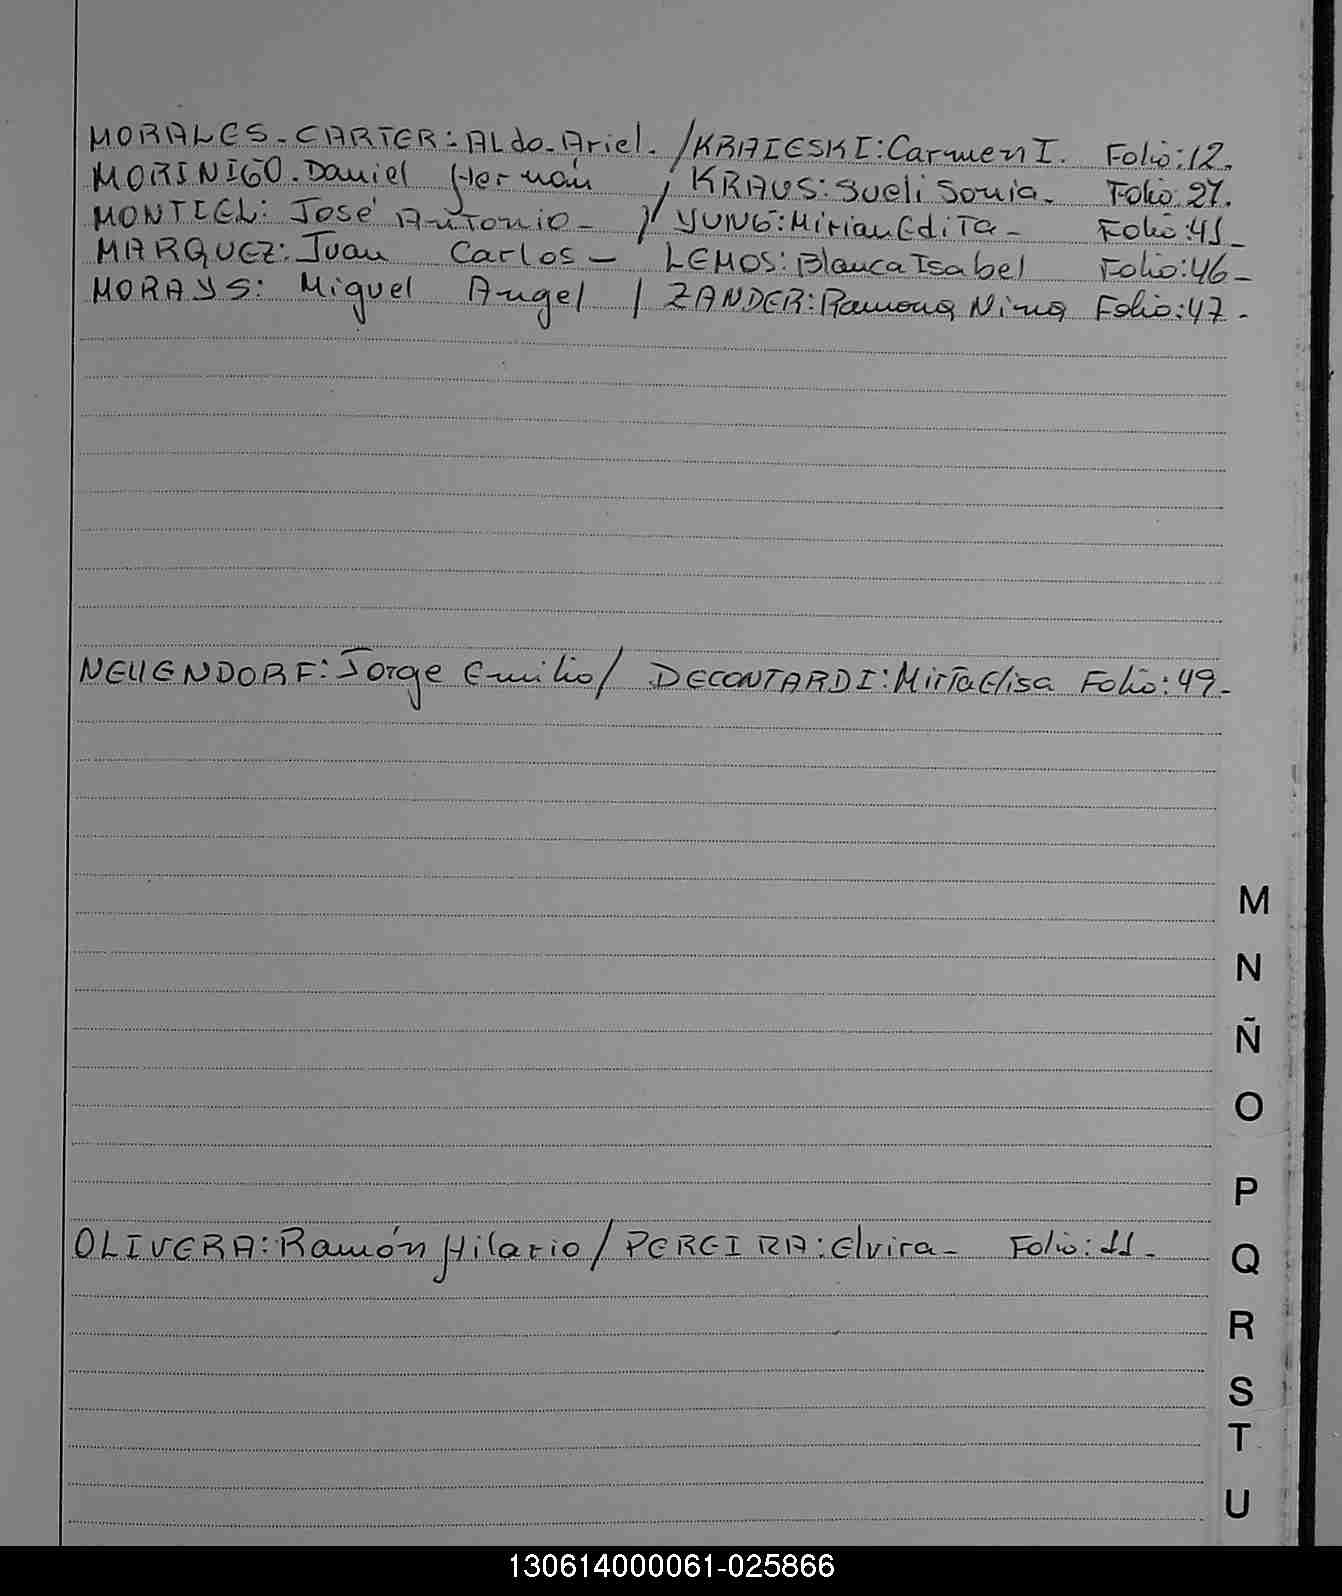 MORALES-CARTER: ALdo-Ariel. / KRAIESKI: Carmen I. Folio: 12.
MORINIGO. Daniel Hernán / KRAUS: Sueli Sonia. Folio 27.
MONTIEL: José Antonio - / YUNG: Mirian Edita - Folio: 41 -
MARQUEZ: Juan Carlos - LEMOS: Blanca Isabel Folio: 46 -
MORAYS: Miguel Angel / ZANDER: Ramona Nina Folio: 47 -
NEUENDORF: Jorge Emilio / DECONTARDI: Mirta Elisa Folio: 49 -
M
N
Ñ
O
P
OLIVERA: Ramón Hilario / PEREIRA: Elvira - Folio: 11 -
Q
R
S
T
U
130614000061-025866